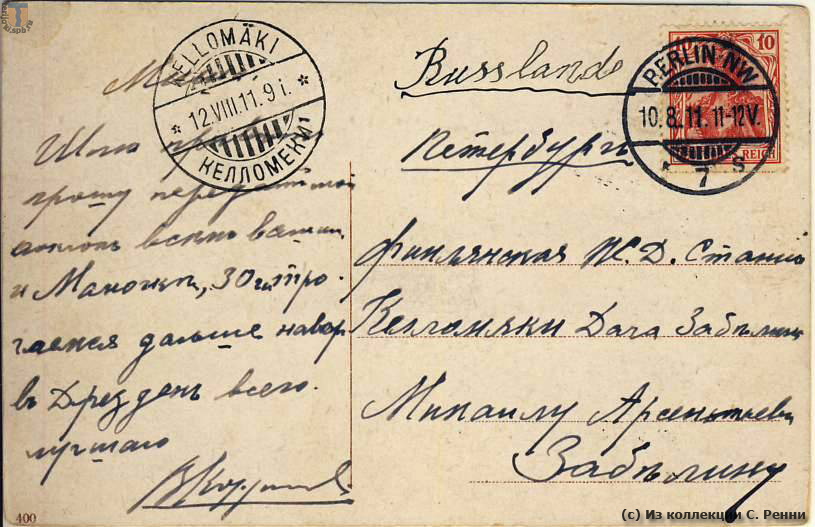 KELLOMÄKI
12.VIII.11. 9 i.
КЕЛЛОМЕКИ
Шлю
прошу передать мой
всем вашим
и Маночки, 30го
дальше
въ Дрезденъ всего
лучшаго
400
Russland
Петербургъ
BERLIN NW
10.8.11. 11-12V.
* 7 s
10
REICH
Финляндская Ж.Д. Станція
Келломяки Дача Забѣлина
Михаилу Арсеньевичу
Забѣлину
(c) Из коллекции С. Ренни